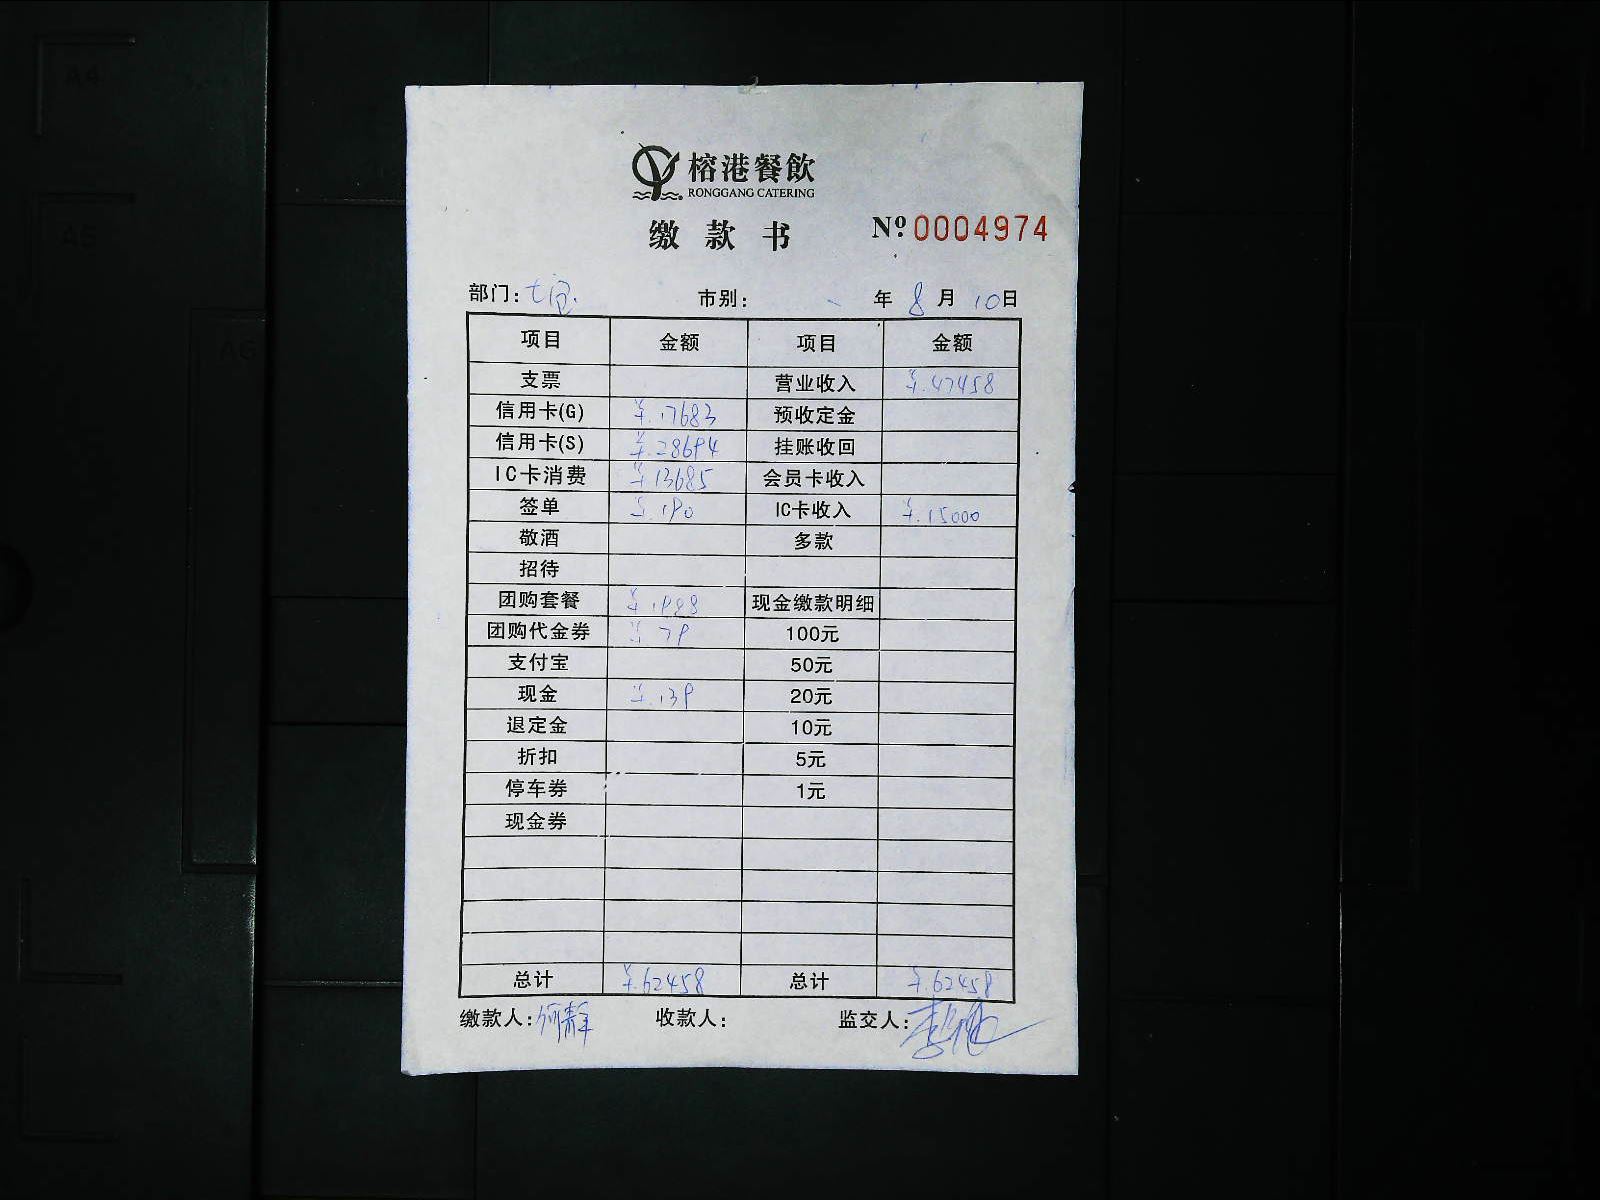 A4
A5
A6
榕港餐飲
RONGGANG CATERING
缴款书 Nº 0004974
部门: 市别: 年 8 月 10 日
项目 金额 项目 金额
支票 营业收入 ¥.47458
信用卡(G) ¥.17683 预收定金
信用卡(S) ¥.28694 挂账收回
IC卡消费 ¥13685 会员卡收入
签单 ¥.190 IC卡收入 ¥.15000
敬酒 多款
招待
团购套餐 ¥.1988 现金缴款明细
团购代金券 ¥79 100元
支付宝 50元
现金 ¥.139 20元
退定金 10元
折扣 5元
停车券 1元
现金券
总计 ¥.62458 总计 ¥.62458
缴款人:何静 收款人: 监交人: